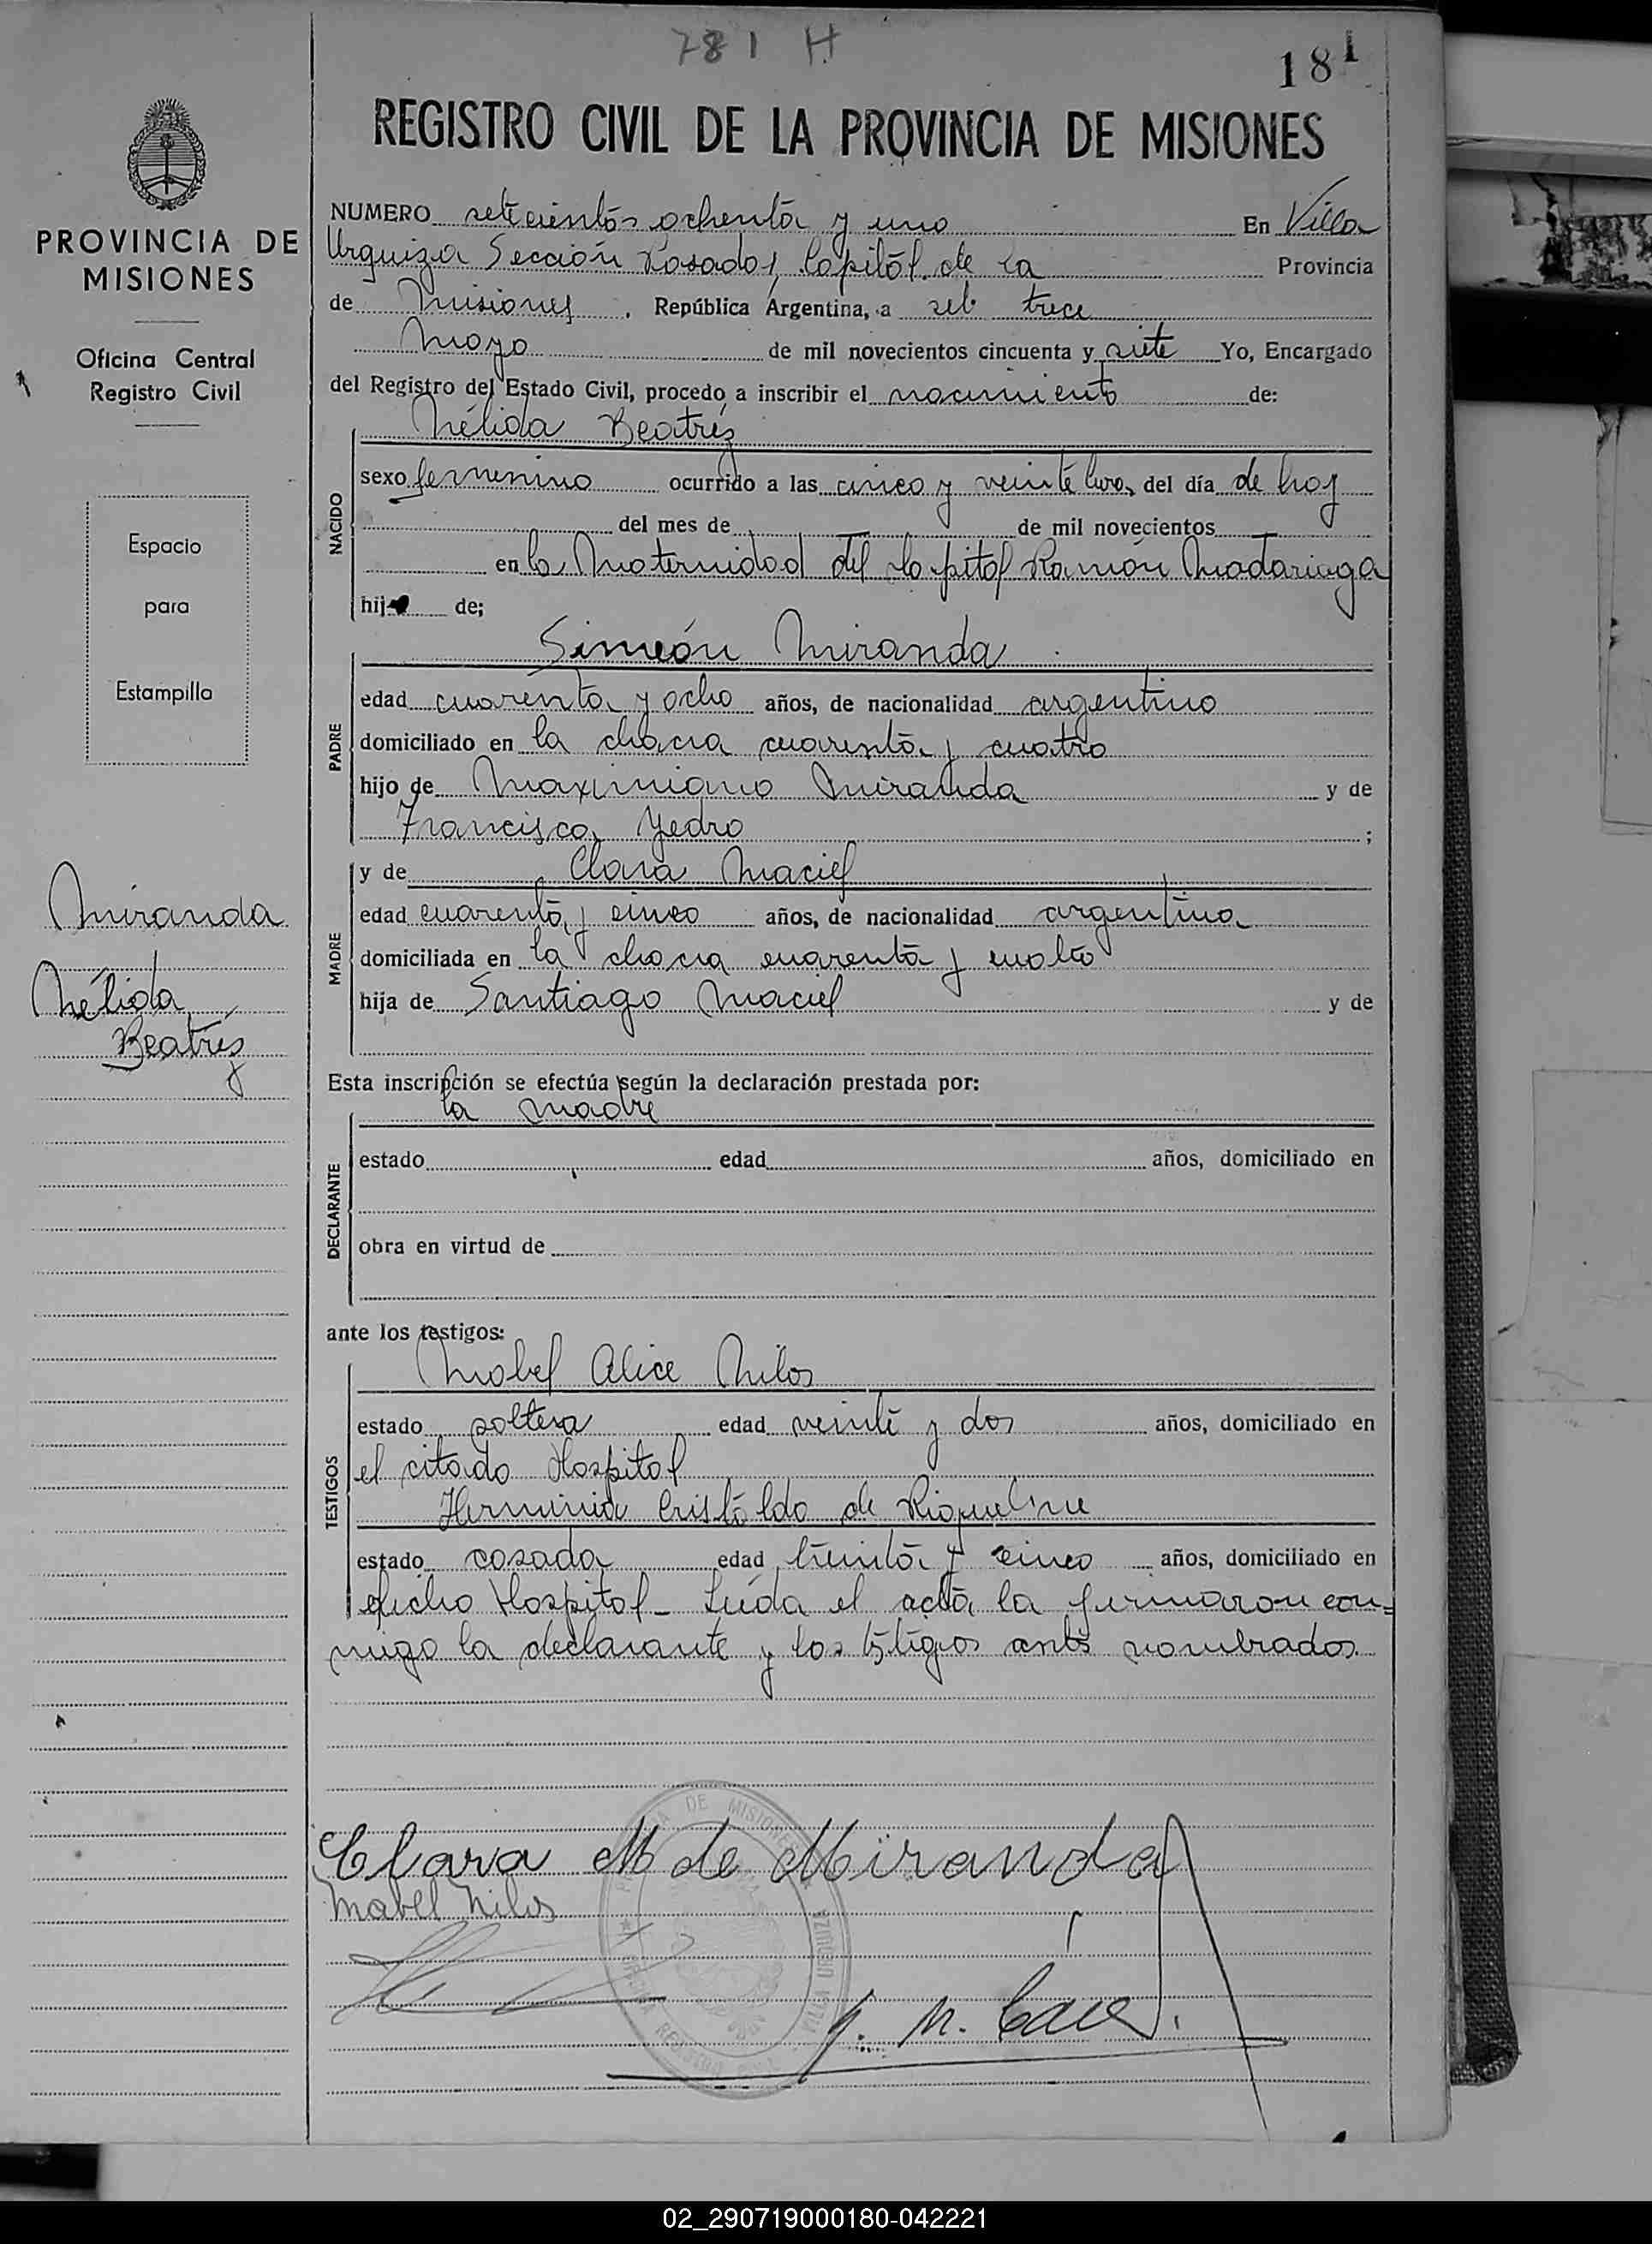 781 H
181
REGISTRO CIVIL DE LA PROVINCIA DE MISIONES
PROVINCIA DE
MISIONES
Oficina Central
Registro Civil
Espacio
para
Estampilla
Miranda
Nélida
Beatríz
NUMERO setecientos ochenta y uno En Villa
Urquiza Sección Posadas, Capital de la Provincia
de Misiones, República Argentina, a trece
Mayo de mil novecientos cincuenta y siete Yo, Encargado
del Registro del Estado Civil, procedo a inscribir el nacimiento de:
Nélida Beatríz
NACIDO
sexo femenino ocurrido a las cinco y veinte horas del día de hoy
del mes de de mil novecientos
en la Maternidad del Hospital Ramón Madariaga
hija de;
Simeón Miranda
PADRE
edad cuarenta y ocho años, de nacionalidad argentino
domiciliado en la chacra cuarenta y cuatro
hijo de Maximiano Miranda y de
Francisca Yedro ;
y de Clara Maciel
MADRE
edad cuarenta y cinco años, de nacionalidad argentina
domiciliada en la chacra cuarenta y cuatro
hija de Santiago Maciel y de
Esta inscripción se efectúa según la declaración prestada por:
la madre
DECLARANTE
estado edad años, domiciliado en
obra en virtud de
ante los testigos:
Mabel Alice Nilos
TESTIGOS
estado soltera edad veinte y dos años, domiciliado en
el citado Hospital
Herminia Cristaldo de Riquelme
estado casada edad treinta y cinco años, domiciliado en
dicho Hospital - Leída el acta la firmaron con=
migo la declarante y los testigos antes nombrados.
Clara M de Miranda
Mabel Nilos
DE MISIONES
VILLA URQUIZA
02_290719000180-042221